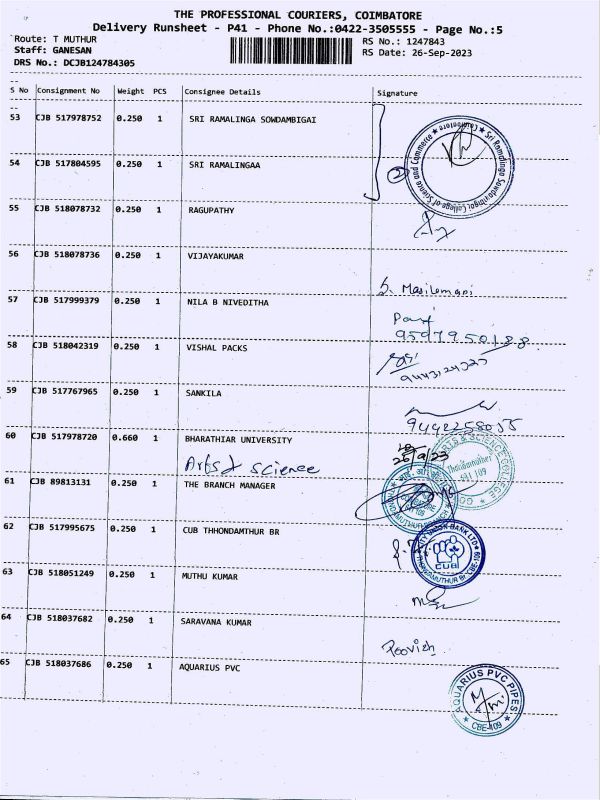 THE PROFESSIONAL COURIERS, COIMBATORE
Delivery Runsheet - P41 - Phone No.:0422-3505555 - Page No.:5
Route: T MUTHUR RS No.: 1247843
Staff: GANESAN RS Date: 26-Sep-2023
DRS No.: DCJB124784305
S No Consignment No Weight PCS Consignee Details Signature
53 CJB 517978752 0.250 1 SRI RAMALINGA SOWDAMBIGAI
Sri Ramalinga Sowdambigai College of Science and Commerce ★ Coimbatore ★
2
54 CJB 517804595 0.250 1 SRI RAMALINGAA
55 CJB 518078732 0.250 1 RAGUPATHY
56 CJB 518078736 0.250 1 VIJAYAKUMAR
S. Masilamani
57 CJB 517999379 0.250 1 NILA B NIVEDITHA
9597950188
58 CJB 518042319 0.250 1 VISHAL PACKS
59 CJB 517767965 0.250 1 SANKILA
60 CJB 517978720 0.660 1 BHARATHIAR UNIVERSITY
Arts & Science
26/9/23
ARTS & SCIENCE COLLEGE
Thondamuthur
641 109
61 CJB 89813131 0.250 1 THE BRANCH MANAGER
62 CJB 517995675 0.250 1 CUB THHONDAMTHUR BR
CITY UNION BANK LTD
CUB
THONDAMUTHUR BR CBE-109
63 CJB 518051249 0.250 1 MUTHU KUMAR
64 CJB 518037682 0.250 1 SARAVANA KUMAR
65 CJB 518037686 0.250 1 AQUARIUS PVC
AQUARIUS PVC PIPES
★ CBE-109 ★